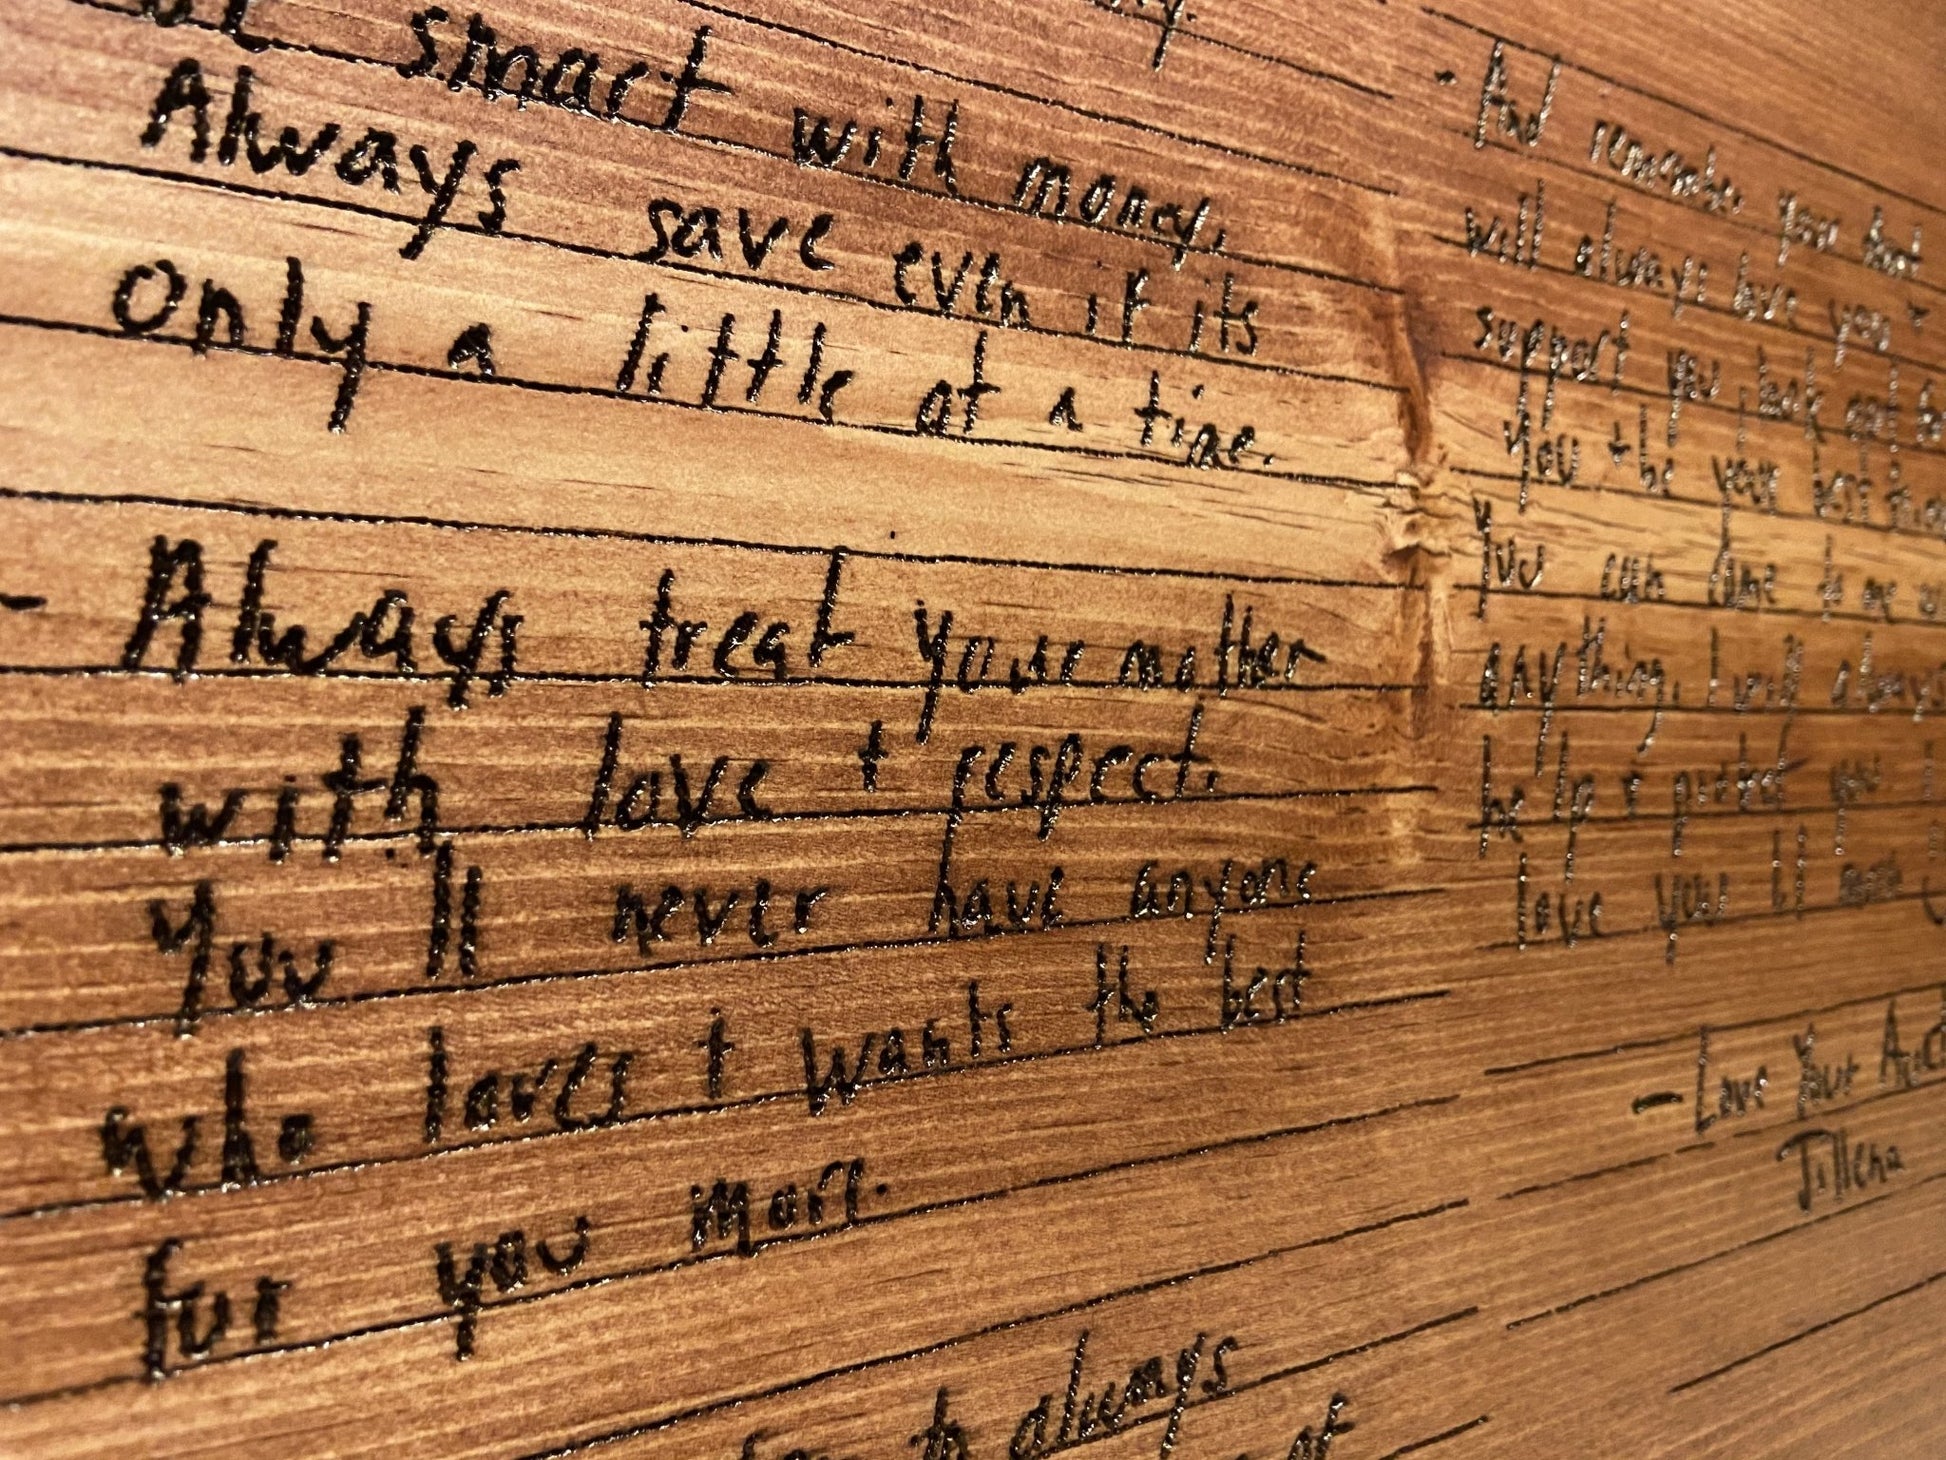 smart with money.
Always save even if its
only a little at a time.
- Always treat your mother
with love + respect.
You'll never have anyone
who loves + wants the best
for you more.
to always
at
- And remember your Aunt
will always love you +
support you, look out for
you + be your best
You can come to me
anything. I will always
help + protect you
love you lil man
- Love Your Aunt
Jillena